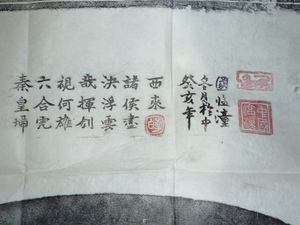 秦皇掃
六合虎
視何雄
哉揮劍
決浮雲
諸侯盡
西來
癸亥年
冬月於中
國